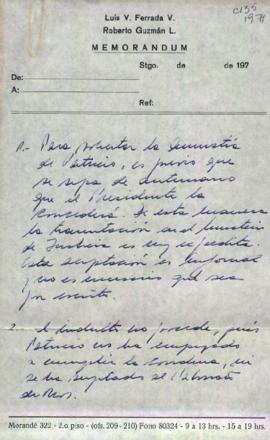 Luis V. Ferrada V.
Roberto Guzmán L.
MEMORANDUM
Stgo. de de 197
De:
A:
Ref:
Para solicitar la
de Patricio, es previo que
se sepa de antemano
que el Presidente la
concederá. De esta manera
la tramitación en el Ministerio
de Justicia es muy expedita.
Esta aceptación es informal
y no es necesario que sea
por escrito.
2. El indulto no procede, pues
Patricio no ha empezado
a cumplir la condena, ni
se ha
de Reos.
Morandé 322 - 2.o piso - (ofs. 209 - 210) Fono 80324 - 9 a 13 hrs. - 15 a 19 hrs.